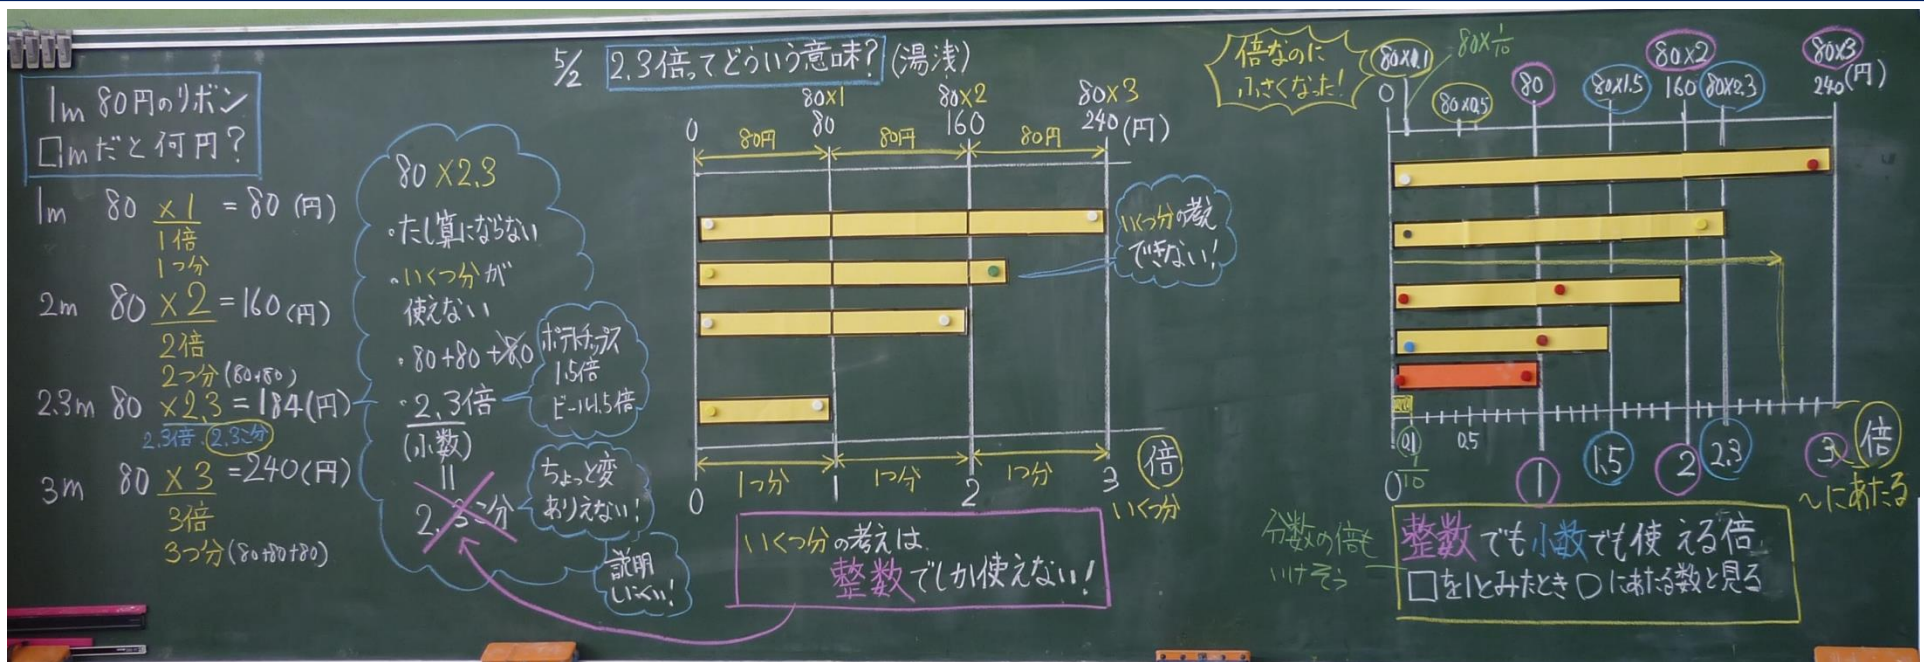 1m 80円のリボン
□mだと何円?
1m 80 ×1 = 80 (円)
1倍
1つ分
2m 80 ×2 = 160 (円)
2倍
2つ分 (80+80)
2.3m 80 ×2.3 = 184 (円)
2.3倍 2.3こ分
3m 80 ×3 = 240 (円)
3倍
3つ分 (80+80+80)
80×2.3
・たし算にならない
・いくつ分が
使えない
・80+80+80
・2.3倍
(小数)
||
2.3こ分
ポテトチップス
1.5倍
ビール1.5倍
ちょっと変
ありえない!
説明
しにくい!
5/2 2.3倍ってどういう意味? (湯浅)
80×1 80×2 80×3
0 80 160 240 (円)
80円 80円 80円
いくつ分の考え
できない!
1つ分 1つ分 1つ分 倍
0 1 2 3 いくつ分
いくつ分の考えは
整数でしか使えない!
倍なのに
小さくなった!
80×0.1 80×1/10 80×2 80×3
0 80×0.5 80 80×1.5 160 80×2.3 240 (円)
0.1 0.5 1 1.5 2 2.3 3 倍
0 1/10
〜にあたる
分数の倍も
いけそう
整数でも小数でも使える倍
□を1とみたとき○にあたる数と見る